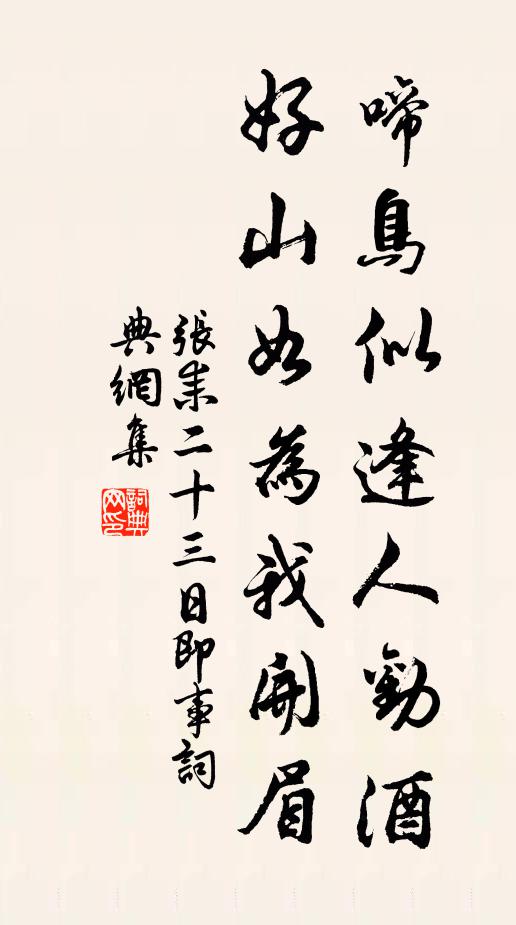 啼鳥似逢人勸酒
好山如為我開眉
張耒二十三日即事詞
典網集
詞典網印